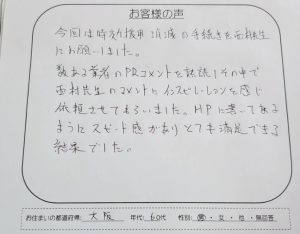 お客様の声
今回は時効援用 消滅の手続きを西村先生
にお願いしました。
数ある業者のPRコメントを熟読しその中で
西村先生のコメントにインスピレーションを感じ
依頼させてもらいました。HPに書いてある
ようにスピード感がありとても満足できる
結果でした。
お住まいの都道府県: 大阪 年代: 60代 性別: 男・女・他・無回答